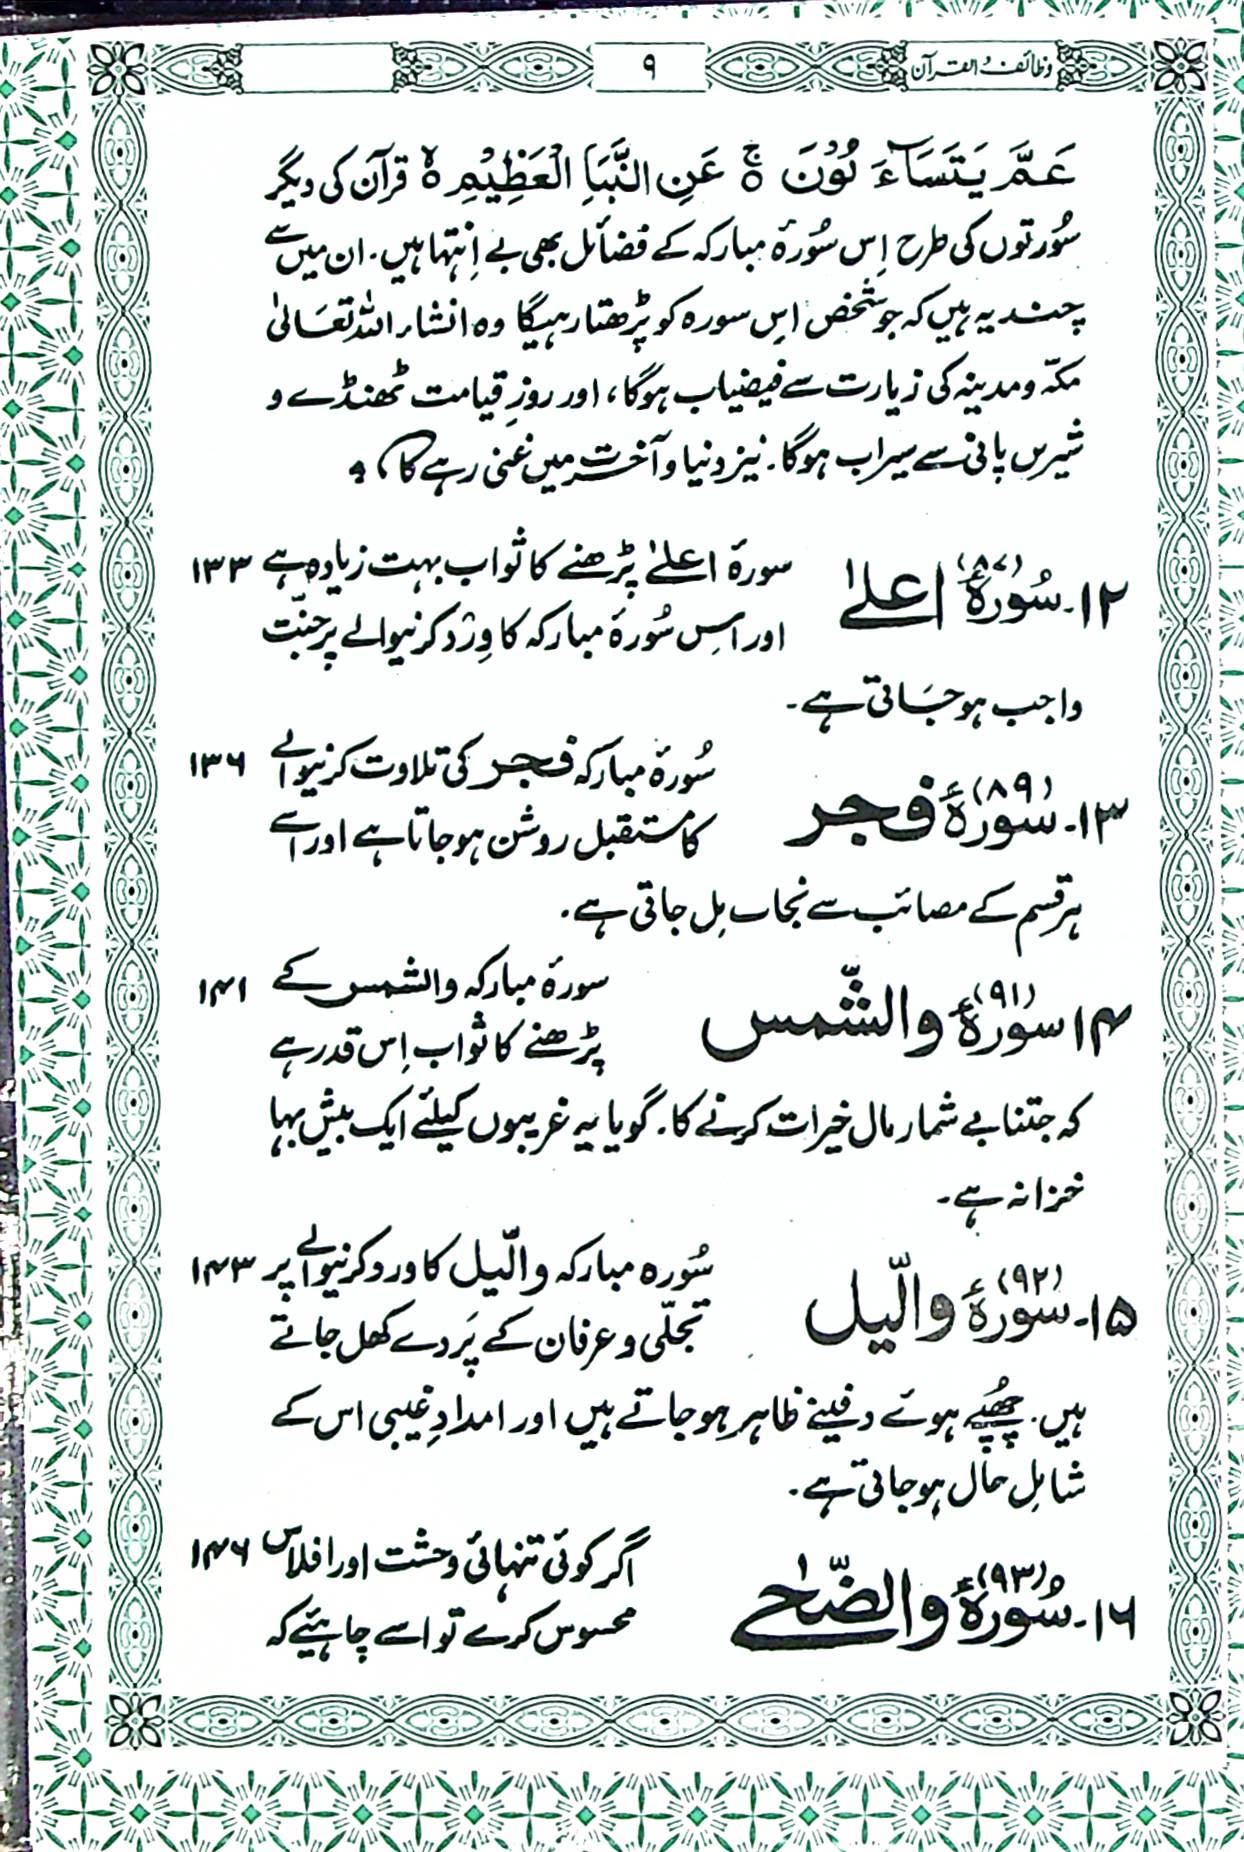 وظائف القرآن
۹
عَمَّ يَتَسَآءَ لُوْنَ ۚ عَنِ النَّبَاِ الْعَظِيْمِ ۙ قرآن کی دیگر
سُورتوں کی طرح اِس سُورۂ مبارکہ کے فضائل بھی بے اِنتہا ہیں۔ ان میں سے
چند یہ ہیں کہ جو شخص اس سورہ کو پڑھتا رہیگا وہ انشاء اللہ تعَالیٰ
مکہّ و مدینہ کی زیارت سے فیضیاب ہوگا، اور روزِ قیامت ٹھنڈے و
شیرس پانی سے سیراب ہوگا۔ نیز دنیا و آخرت میں غنی رہے گا،
۱۲۔ سُورۂ اعلیٰ (۸۷) سورۂ اعلےٰ پڑھنے کا ثواب بہت زیادہ ہے ۱۳۳
اور اس سُورۂ مبارکہ کا وِرْد کرنیوالے پر جنّت
واجب ہو جَاتی ہے۔
۱۳۔ سورۂ فجر (۸۹) سُورۂ مبارکہ فجر کی تلاوت کرنیوالے ۱۳۶
کا مستقبل روشن ہو جاتا ہے اور اسے
ہر قسم کے مصائب سے نجات مِل جاتی ہے۔
۱۴ سورۂ والشّمس (۹۱) سورۂ مبارکہ والشمس کے ۱۴۱
پڑھنے کا ثواب اِس قدر ہے
کہ جتنا بے شمار مال خیرات کرنے کا۔ گویا یہ غریبوں کیلئے ایک بیش بہا
خزانہ ہے۔
۱۵۔ سورۂ والّیل (۹۲) سُورہ مبارکہ والّیل کا ورد کرنیوالے پر ۱۴۳
تجلّی و عرفان کے پَردے کھل جاتے
ہیں۔ چھُپے ہوئے دفینے ظاہر ہو جاتے ہیں اور امدادِ غیبی اس کے
شاملِ حال ہو جاتی ہے۔
۱۶۔ سُورۂ والضّحٰے (۹۳) اگر کوئی تنہائی وحشت اور افلاس ۱۴۶
محسوس کرے تو اسے چاہیئے کہ